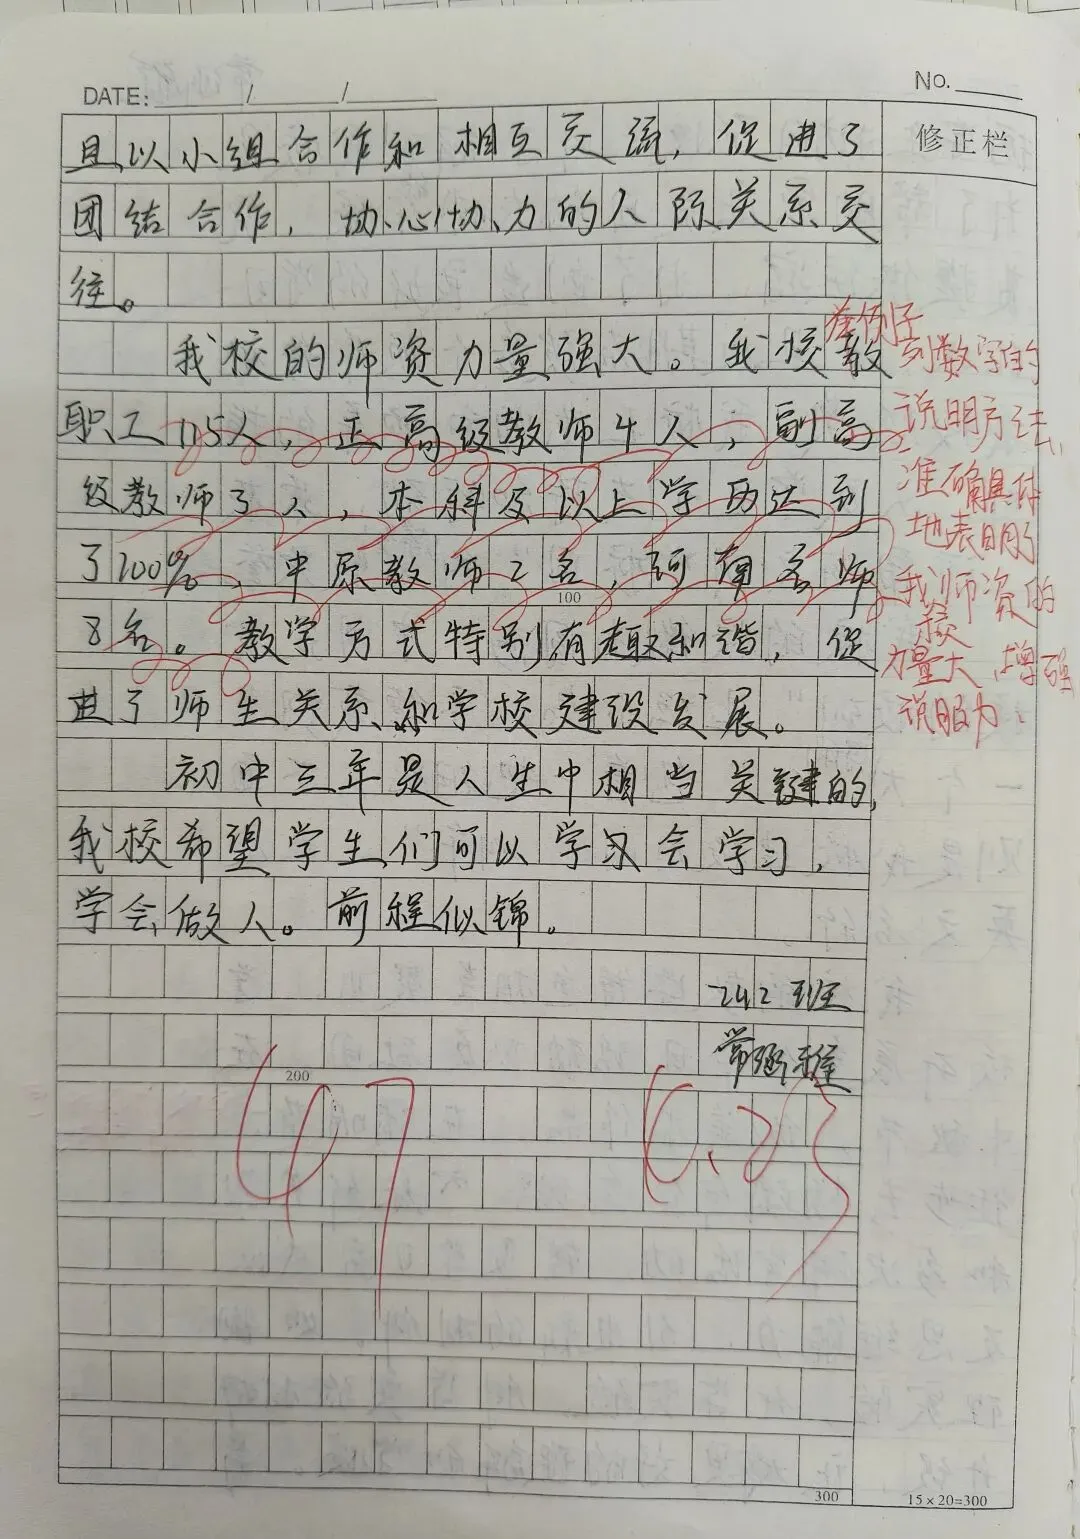 DATE: / /
No.
修正栏
且以小组合作和相互交流，促进了
团结合作，协心协力的人际关系交
往。
我校的师资力量强大。我校教
职工115人，正高级教师4人，副高
级教师3人，本科及以上学历达到
了100%，中原教师2名，河南名师
8名。教学方式特别有趣和谐，促
进了师生关系和学校建设发展。
初中三年是人生中相当关键的，
我校希望学生们可以学习会学习，
学会做人。前程似锦。
242班
举例子
列数字的
说明方法，
准确具体
地表明了
我校师资的
力量大，增强
说服力。
100
200
47
6.23
300
15×20=300